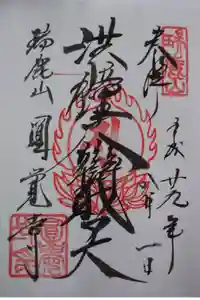 奉拝
平成廿九年
八月
一日
洪鐘大辨才天
瑞鹿山
圓覚寺